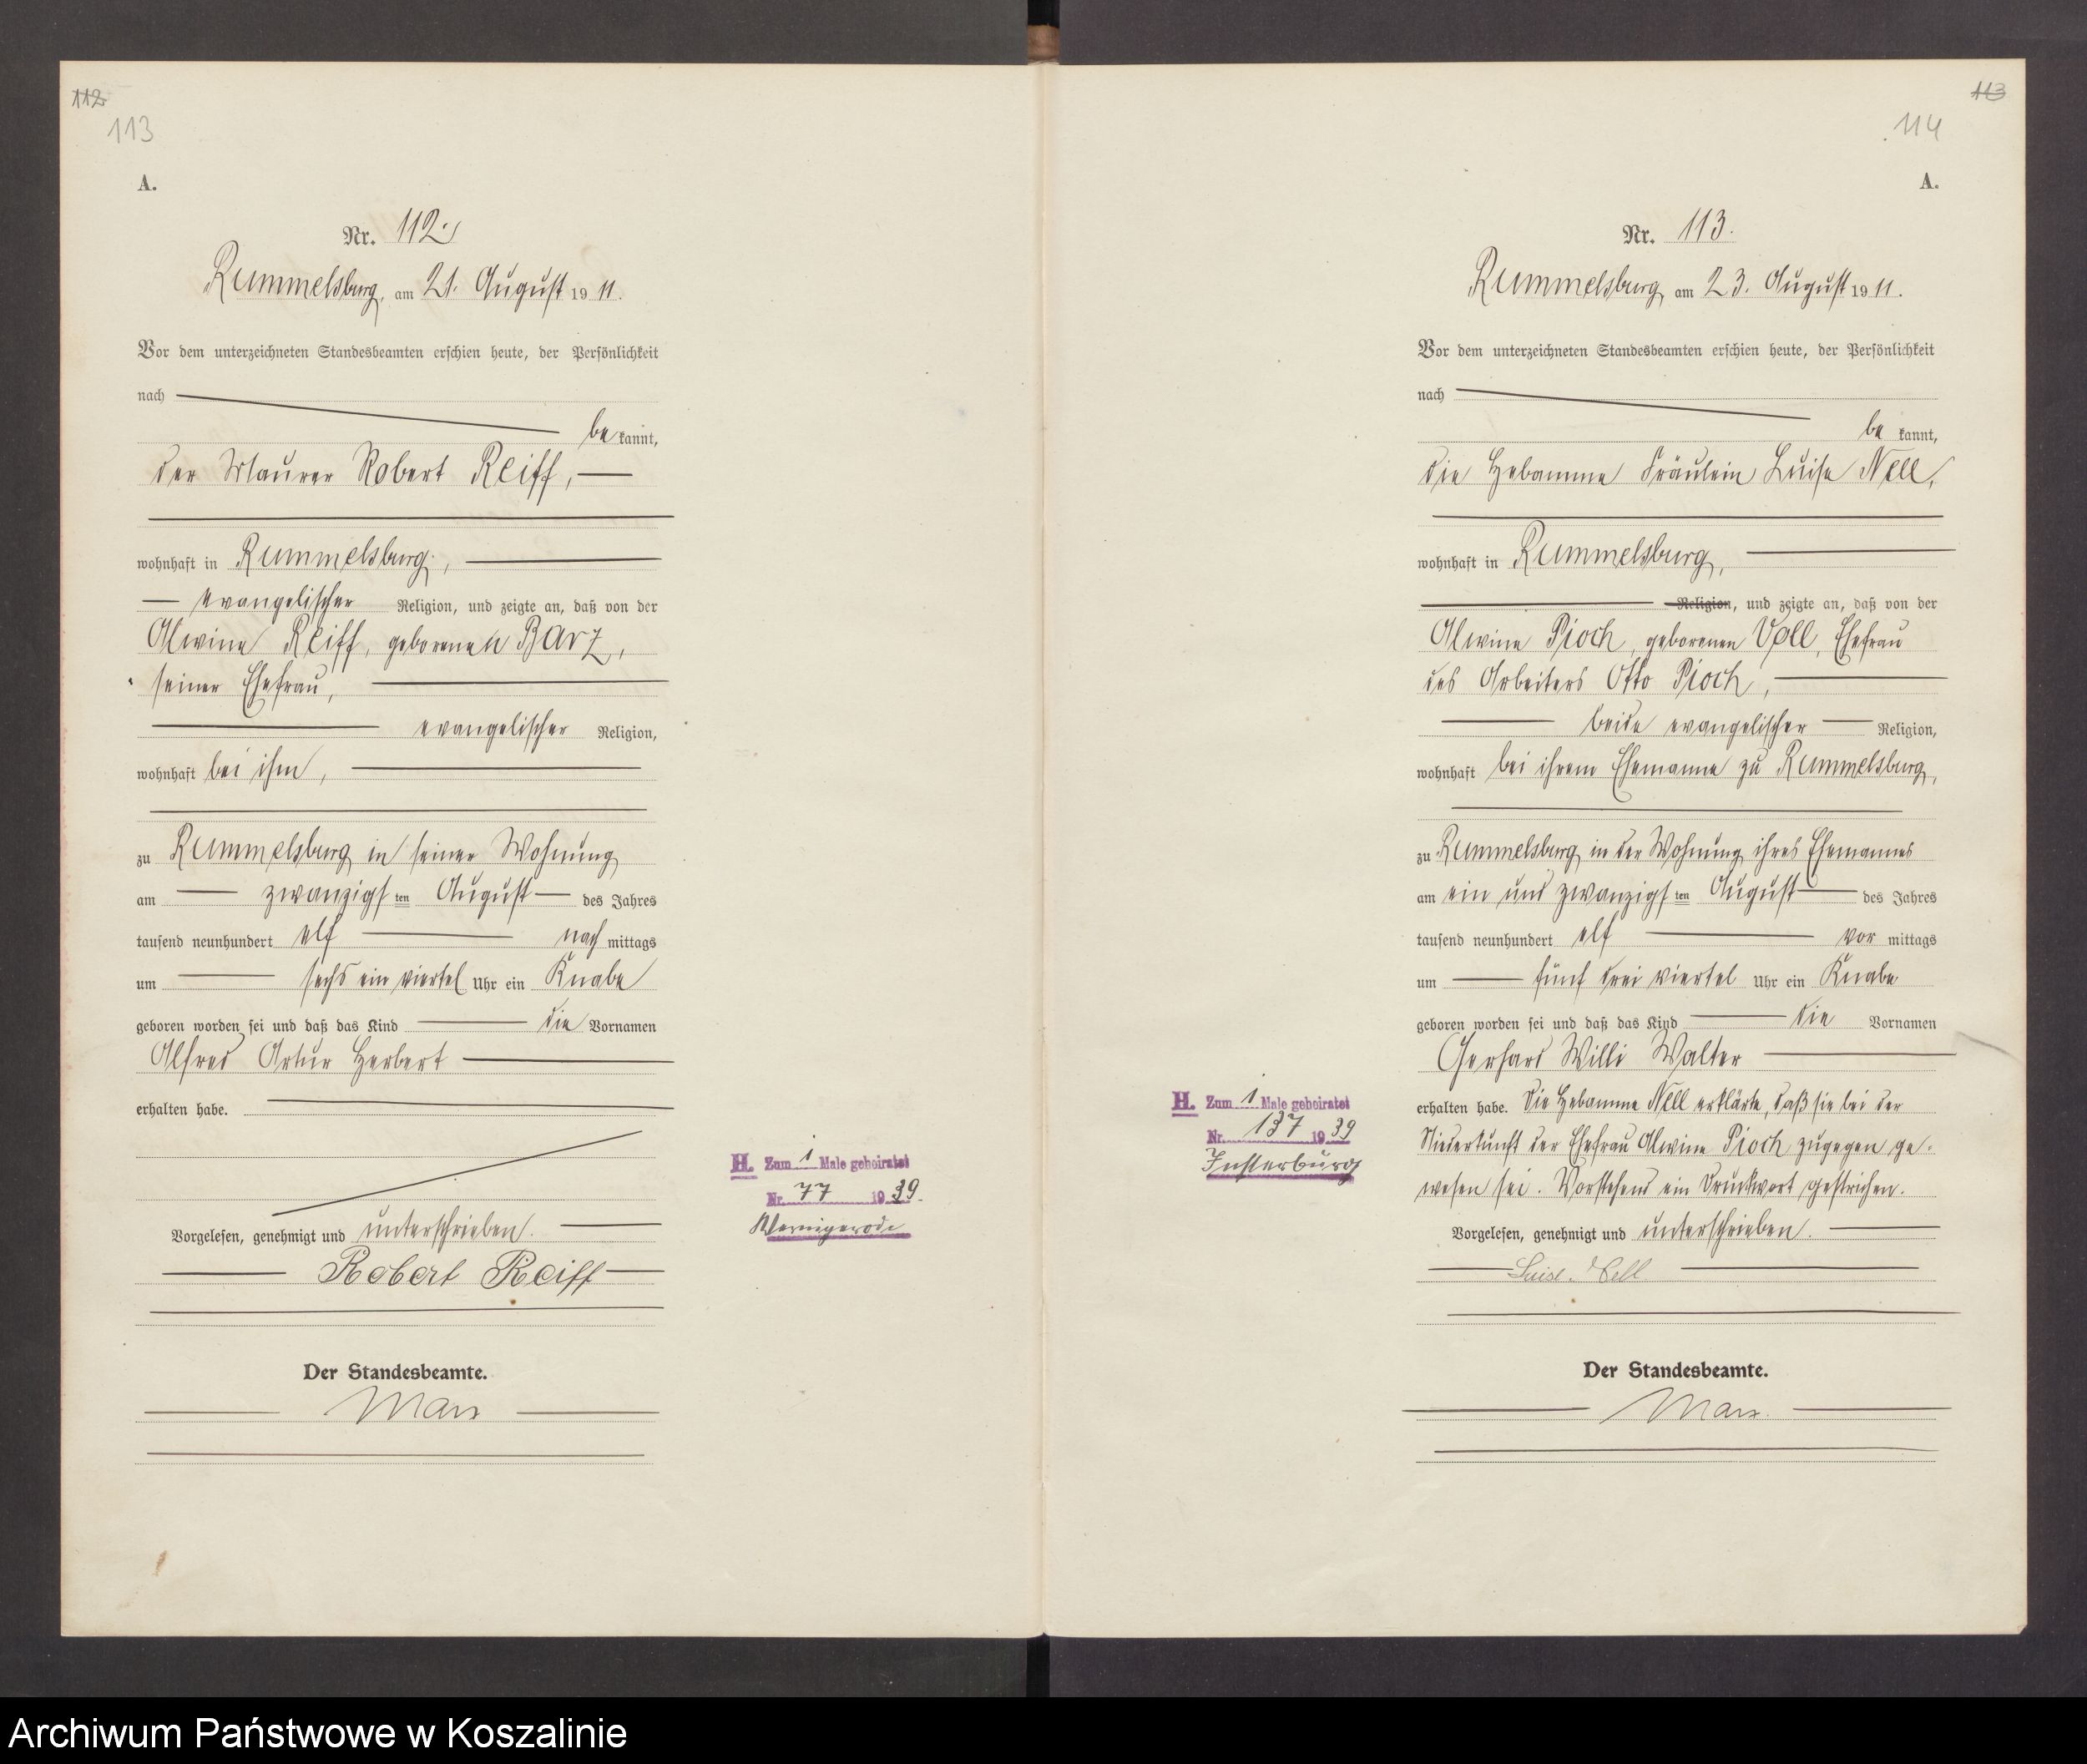 112
113
A.
Nr. 112.
Rummelsburg, am 21. August 1911.
Vor dem unterzeichneten Standesbeamten erschien heute, der Persönlichkeit
nach
bekannt,
der Maurer Robert Reiff,
wohnhaft in Rummelsburg,
evangelischer Religion, und zeigte an, daß von der
Alwine Reiff, geborenen Barz,
seiner Ehefrau,
evangelischer Religion,
wohnhaft bei ihm,
zu Rummelsburg in seiner Wohnung
am zwanzigsten August des Jahres
tausend neunhundert elf nachmittags
um sechs ein viertel Uhr ein Knabe
geboren worden sei und daß das Kind die Vornamen
Alfred Artur Herbert
erhalten habe.
Vorgelesen, genehmigt und unterschrieben.
Robert Reiff
Der Standesbeamte.
H. Zum 1 Male geheiratet
Nr. 77 1939.
Wernigerode
113
114
A.
Nr. 113.
Rummelsburg am 23. August 1911.
Vor dem unterzeichneten Standesbeamten erschien heute, der Persönlichkeit
nach
bekannt,
die Hebamme Fräulein Luise Nell,
wohnhaft in Rummelsburg,
Religion, und zeigte an, daß von der
Alwine Pioch, geborenen Voll, Ehefrau
des Arbeiters Otto Pioch,
beide evangelischer Religion,
wohnhaft bei ihrem Ehemanne zu Rummelsburg,
zu Rummelsburg in der Wohnung ihres Ehemannes
am ein und zwanzigsten August des Jahres
tausend neunhundert elf vormittags
um fünf drei viertel Uhr ein Knabe
geboren worden sei und daß das Kind die Vornamen
Gerhard Willi Walter
erhalten habe. Die Hebamme Nell erklärte, daß sie bei der
Niederkunft der Ehefrau Alwine Pioch zugegen ge-
wesen sei. Vorstehend ein Druckwort gestrichen.
Vorgelesen, genehmigt und unterschrieben.
Luise Nell
Der Standesbeamte.
H. Zum 1 Male geheiratet
Nr. 137 1939
Insterburg
Archiwum Państwowe w Koszalinie